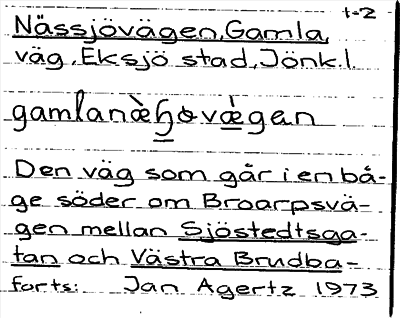 1-2
Nässjövägen, Gamla,
väg, Eksjö stad, Jönk.l.
gamlanæ̀ɧɵvæ̀gen
Den väg som går i en bå-
ge söder om Broarpsvä-
gen mellan Sjöstedtsga-
tan och Västra Brudba-
forts: Jan Agertz 1973